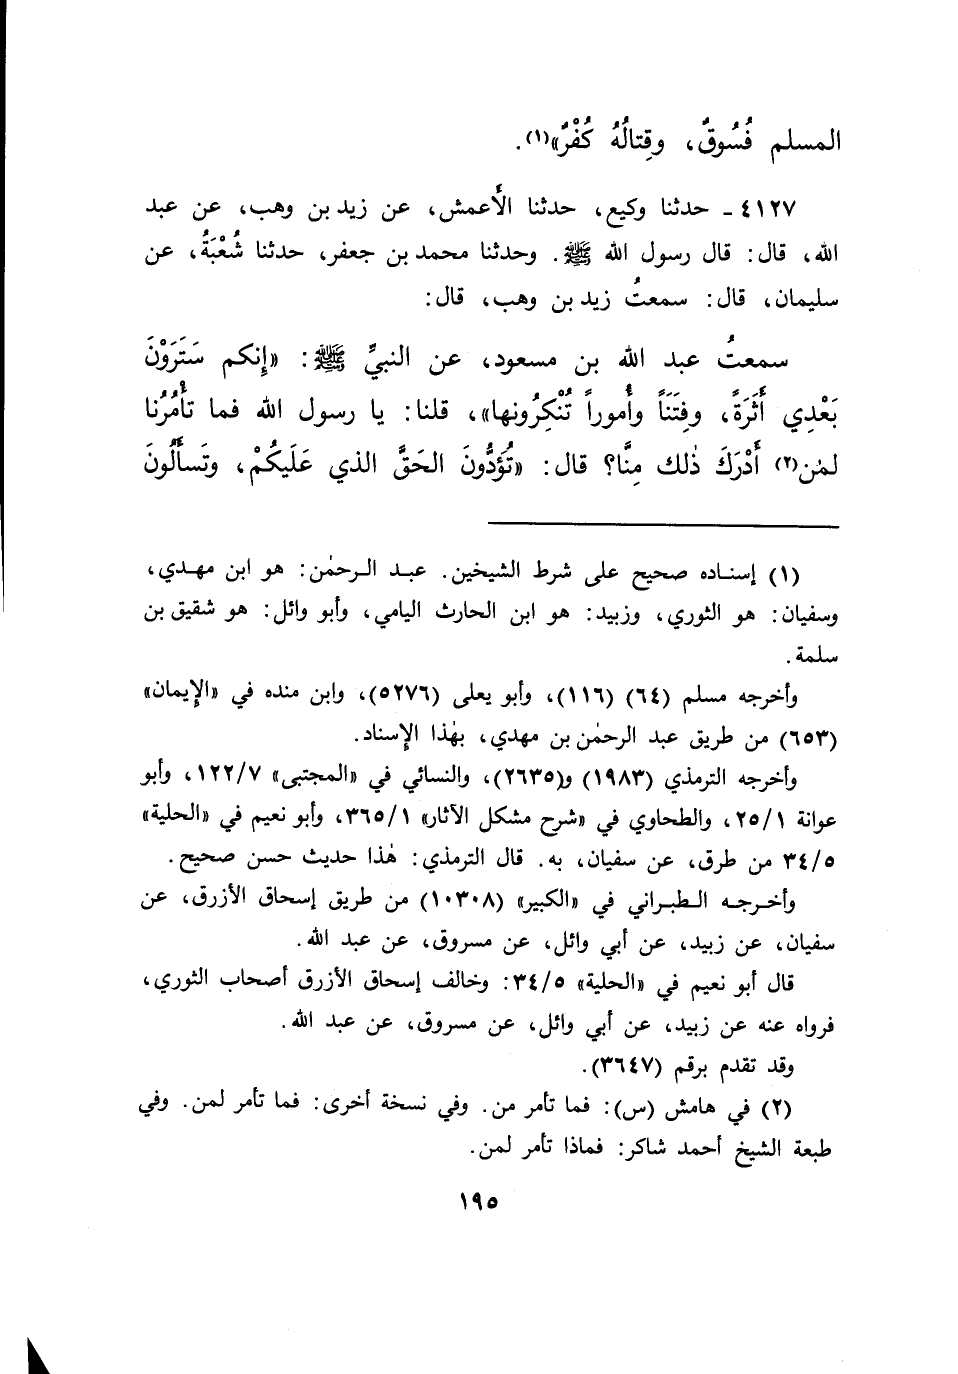 المسلم فُسُوقٌ، وقِتالُهُ كُفْرٌ»(١).
٤١٢٧ - حدثنا وكيع، حدثنا الأَعمش، عن زيد بن وهب، عن عبد
الله، قال: قال رسول الله ﷺ. وحدثنا محمد بن جعفر، حدثنا شُعْبَةُ، عن
سليمان، قال: سمعتُ زيد بن وهب، قال:
سمعتُ عبد الله بن مسعود، عن النبيِّ ﷺ: «إِنكم سَتَرَوْنَ
بَعْدِي أَثَرَةً، وفِتَنَاً وأُموراً تُنْكِرُونها»، قلنا: يا رسول الله فما تأْمُرُنا
لمن(٢) أَدْرَكَ ذٰلك مِنَّا؟ قال: «تُؤَدُّونَ الحَقَّ الذي عَلَيكُمْ، وتَسأَلُونَ
(١) إسناده صحيح على شرط الشيخين. عبد الرحمٰن: هو ابن مهدي،
وسفيان: هو الثوري، وزبيد: هو ابن الحارث اليامي، وأبو وائل: هو شقيق بن
سلمة.
وأخرجه مسلم (٦٤) (١١٦)، وأبو يعلى (٥٢٧٦)، وابن منده في «الإيمان»
(٦٥٣) من طريق عبد الرحمٰن بن مهدي، بهٰذا الإسناد.
وأخرجه الترمذي (١٩٨٣) و(٢٦٣٥)، والنسائي في «المجتبى» ١٢٢/٧، وأبو
عوانة ٢٥/١، والطحاوي في «شرح مشكل الآثار» ٣٦٥/١، وأبو نعيم في «الحلية»
٣٤/٥ من طرق، عن سفيان، به. قال الترمذي: هٰذا حديث حسن صحيح.
وأخرجه الطبراني في «الكبير» (١٠٣٠٨) من طريق إسحاق الأزرق، عن
سفيان، عن زبيد، عن أبي وائل، عن مسروق، عن عبد الله.
قال أبو نعيم في «الحلية» ٣٤/٥: وخالف إسحاق الأزرق أصحاب الثوري،
فرواه عنه عن زبيد، عن أبي وائل، عن مسروق، عن عبد الله.
وقد تقدم برقم (٣٦٤٧).
(٢) في هامش (س): فما تأمر من. وفي نسخة أخرى: فما تأمر لمن. وفي
طبعة الشيخ أحمد شاكر: فماذا تأمر لمن.
١٩٥